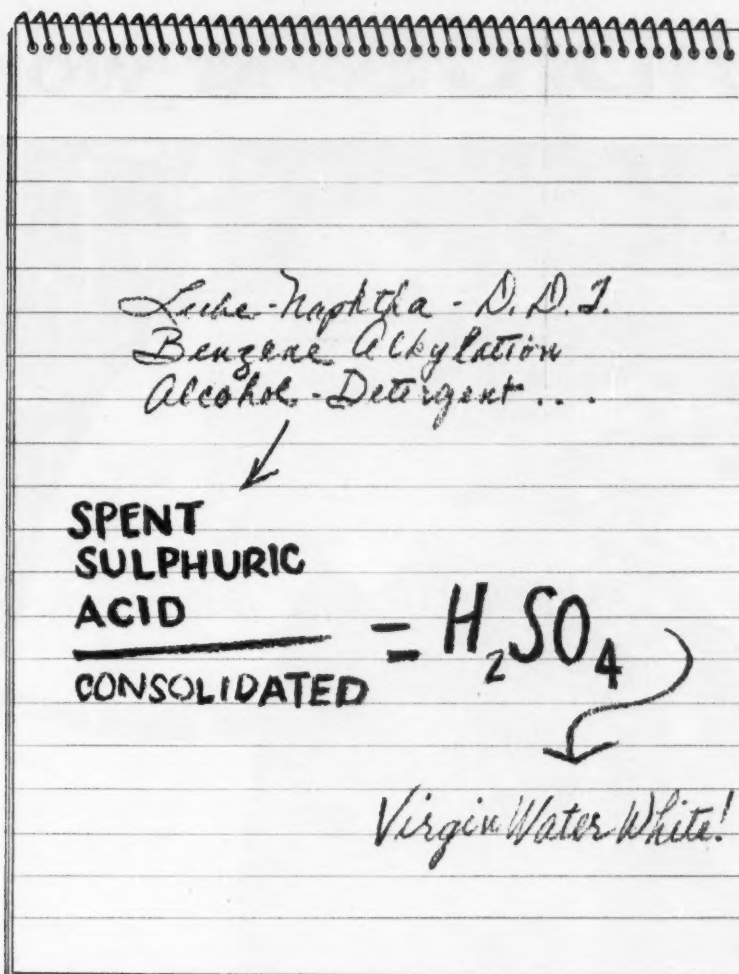 Lube-Naphtha - D.D.T.
Benzene Alkylation
Alcohol-Detergent ...
SPENT
SULPHURIC
ACID
CONSOLIDATED
= H₂SO₄
Virgin Water White!